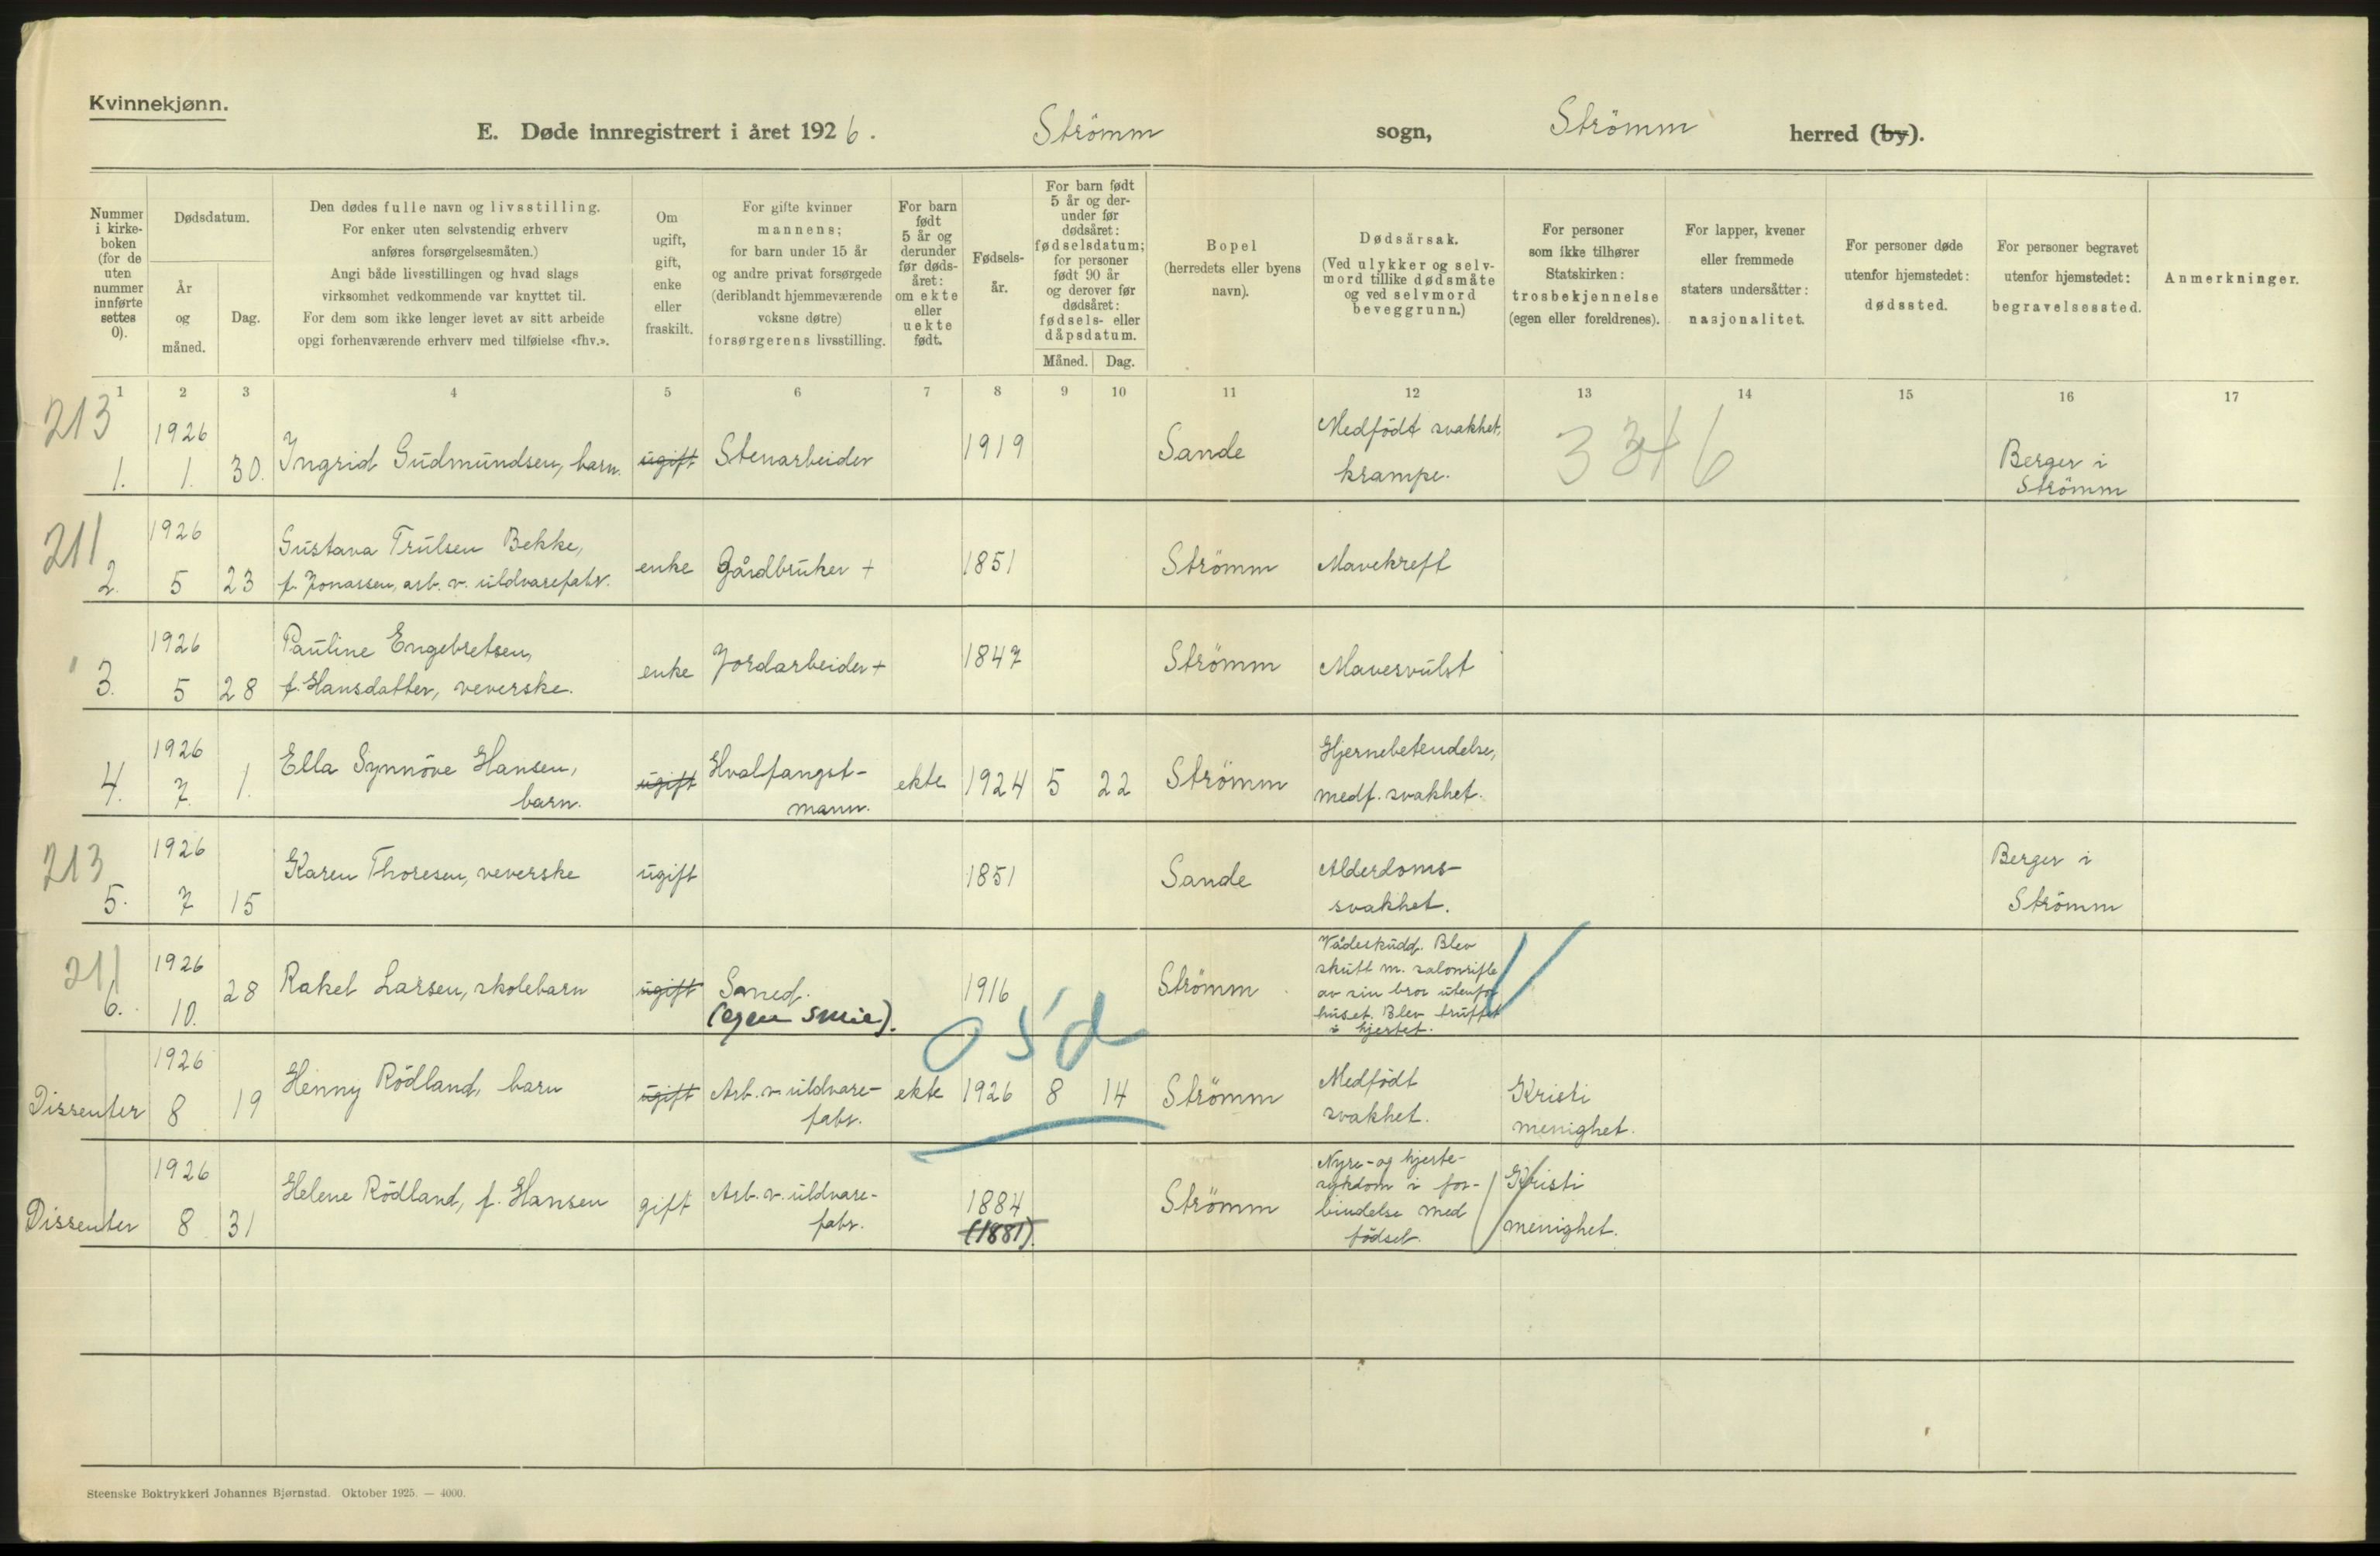 Kvinnekjønn.
E. Døde innregistrert i året 1926. Strömm sogn, Strömm herred (by).
Nummer i kirke-boken (for de uten nummer innførte settes 0).
Dødsdatum.
År og måned.
Dag.
Den dødes fulle navn og livsstilling.
For enker uten selvstendig erhverv
anføres forsørgelsesmåten.)
Angi både livestillingen og hvad slags
virksomhet vedkommende var knyttet til.
For dem som ikke lenger levet av sitt arbeide
opgi forhenværende erhverv med tilføielse «fhv.».
Om ugift, gift, enke eller fraskilt.
For gifte kvinner
mannens;
for barn under 15 år
og andre privat forsørgede
(deriblandt hjemmeværende
voksne døtre)
forsørgerens livsstilling.
For barn født 5 år og derunder før døds-året: om ekte eller uekte født.
Fødsels-år.
For barn født 5 år og der-under før dødsåret: fødselsdatum; for personer født 90 år og derover før dødsåret: fødsels- eller dåpsdatum.
Måned. Dag.
Bopel
(herredets eller byens
navn).
Dødsårsak.
(Ved ulykker og selv-
mord tillike dødsmåte
og ved selvmord
beveggrunn.)
For personer
som ikke tilhører
Statskirken:
trosbekjennelse
(egen eller foreldrenes).
For lapper, kvener
eller fremmede
staters undersåtter:
nasjonalitet.
For personer døde
utenfor hjemstedet:
dødssted.
For personer begravet
utenfor hjemstedet:
begravelsessted.
Anmerkninger.
1 2 3 4 5 6 7 8 9 10 11 12 13 14 15 16 17
213 1. 1926 1. 30. Ingrid Gudmundsen, barn. ugift Stenarbeider 1919 Sande Medfödt svakhet, krampe. Berger i Strömm
211 2. 1926 5 23 Gustava Trulsen Bekke, f. Jonassen, arb. v. uldvarefabr. enke Gårdbruker + 1851 Strömm Mavekreft
" 3. 1926 5 28 Pauline Engebretsen, f. Hansdatter, veverske. enke Jordarbeider + 1847 Strömm Mavesvulst
4. 1926 7. 1. Ella Synnöve Hansen, barn. ugift Hvalfangst-mann. ekte 1924 5 22 Strömm Hjernebetendelse, medf. svakhet.
213 5. 1926 7 15 Karen Thoresen, veverske ugift 1851 Sande Alderdoms-svakhet. Berger i Strömm
211 6. 1926 10. 28 Rakel Larsen, skolebarn ugift Smed. (egen smie). 1916 Strömm Vådeskudd. Blev skutt m. salonrifle av sin bror utenfor huset. Blev truffet i hjertet.
Dissenter 1926 8 19 Henny Rödland, barn ugift Arb. v. uldvare-fabr. ekte 1926 8 14 Strömm Medfödt svakhet. Kristi menighet.
Dissenter 1926 8 31 Helene Rödland, f. Hansen gift Arb. v. uldvare-fabr. 1884 (1881). Strömm Nyre- og hjerte-sykdom i for-bindelse med födsel. Kristi menighet.
Steenske Boktrykkeri Johannes Bjørnstad. Oktober 1925. — 4000.